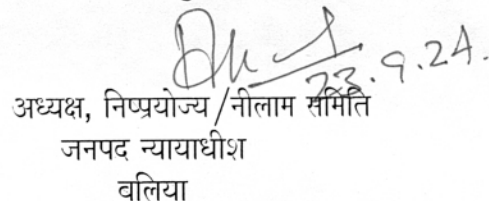 23.9.24.
अध्यक्ष, निष्प्रयोज्य/नीलाम समिति
जनपद न्यायाधीश
बलिया